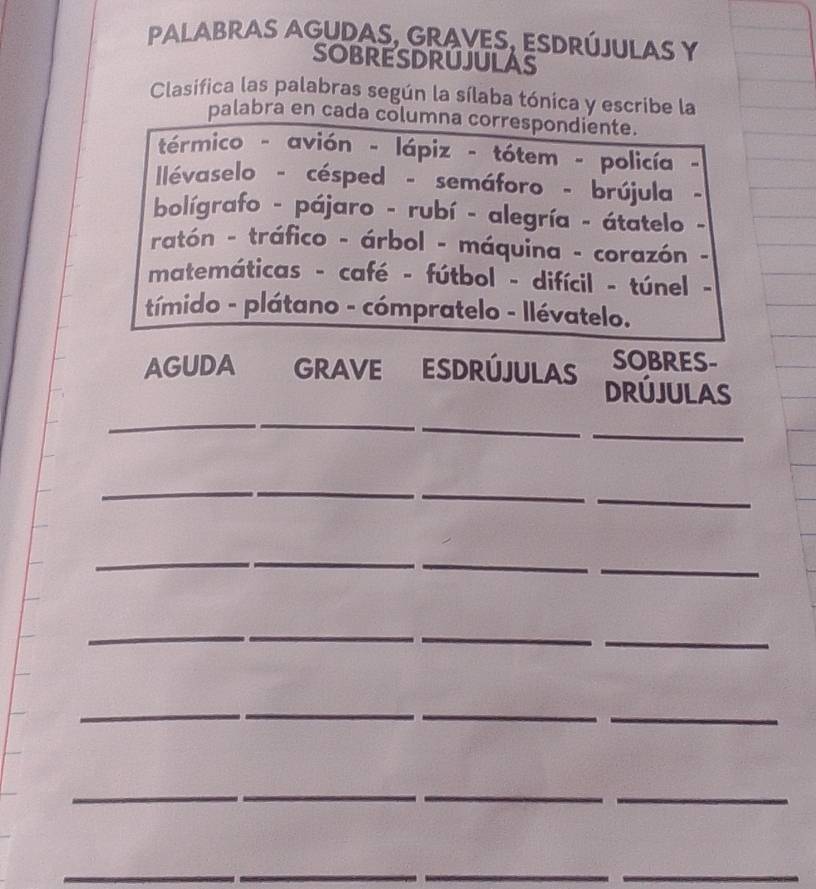 PALABRAS AGUDAS, GRAVES, ESDRÚJULAS Y
SOBRESDRÚJULAS
Clasifica las palabras según la sílaba tónica y escribe la
palabra en cada columna correspondiente.
térmico - avión - lápiz - tótem - policía -
llévaselo - césped - semáforo - brújula -
bolígrafo - pájaro - rubí - alegría - átatelo -
ratón - tráfico - árbol - máquina - corazón -
matemáticas - café - fútbol - difícil - túnel -
tímido - plátano - cómpratelo - llévatelo.
AGUDA GRAVE ESDRÚJULAS SOBRES-
DRÚJULAS